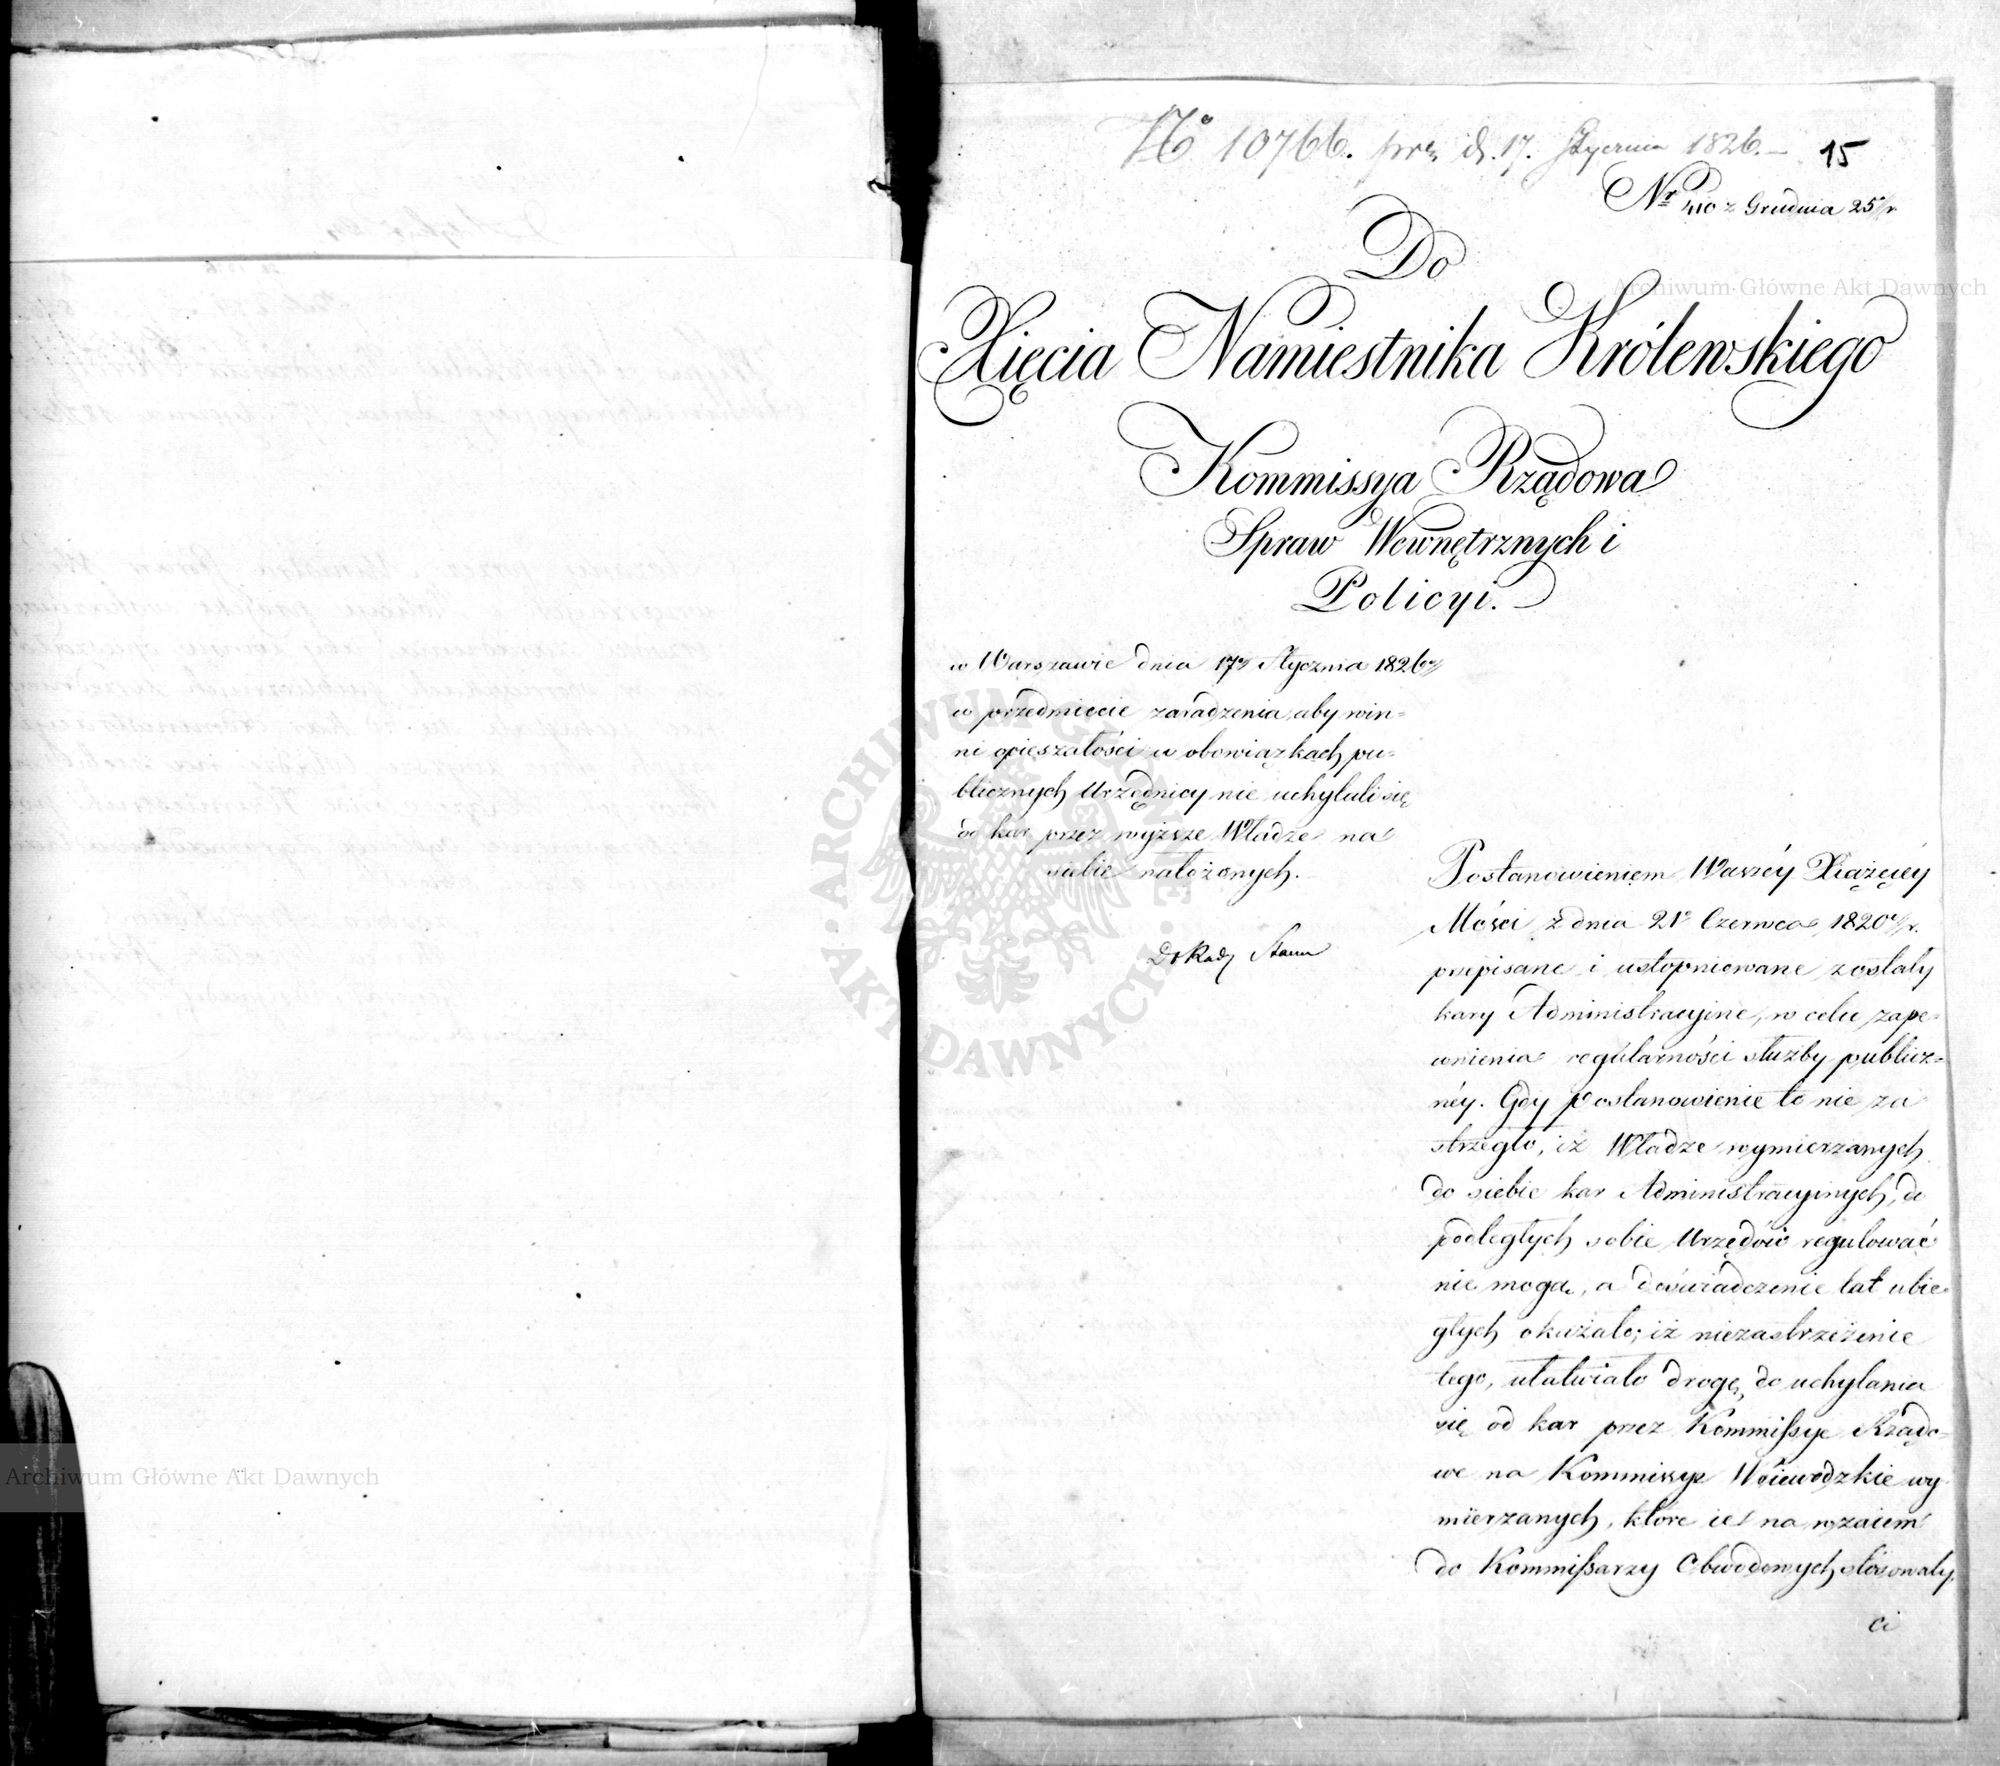 No 10766. prz. d. 17. Stycznia 1826. — 15
Nr 410 z Grudnia 25 r
Do
Xięcia Namiestnika Królewskiego
Kommissya Rządowa
Spraw Wewnętrznych i
Policyi.
w Warszawie dnia 17go Stycznia 1826
w przedmiocie zaradzenia, aby win=
ni opieszałości w obowiązkach pu=
blicznych Urzędnicy nie uchylali się
od kar przez wyższe Władze na
siebie nałożonych.
Do Rady Stanu
Postanowieniem Waszéy Xiążęcéy
Mości z dnia 21o Czerwca 1820 r.
przepisane i ustopniowane zostały
kary Administracyine, w celu zape=
wnienia regularności służby publicz=
néy. Gdy Postanowienie to nie za
strzegło, iż Władze wymierzanych
do siebie kar Administracyinych, do
podległych sobie Urzędów regulować
nie mogą, a doświadczenie lat ubie=
głych okazało; iż niezastrzeżenie
tego, ułatwiało drogę do uchylania
się od kar przez Kommissye Rządo=
we na Kommissye Wóiewodzkie wy
mierzanych, które ie na wzaiem
do Kommissarzy Obwodowych stósowały,
ci
Archiwum Główne Akt Dawnych
Archiwum Główne Akt Dawnych
ARCHIWUM GŁÓWNE · AKT DAWNYCH ·